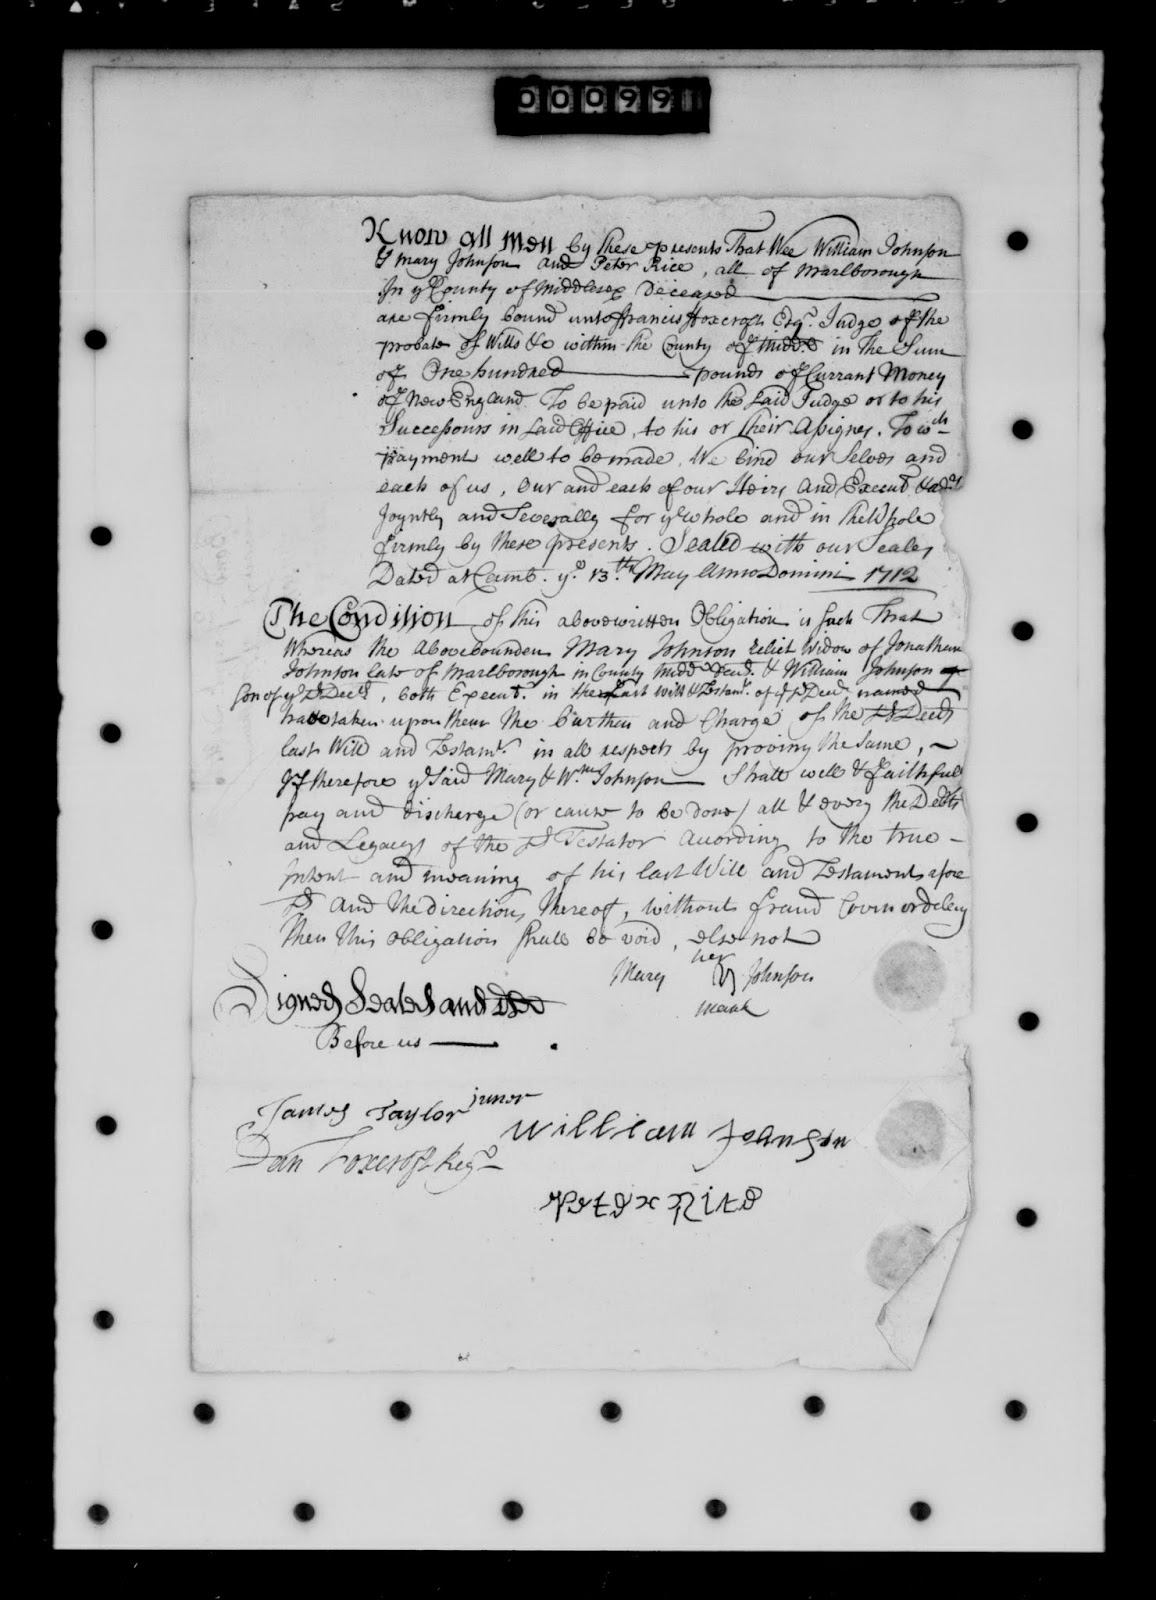 00099
Know all men by these presents That Wee William Johnson
& Mary Johnson and Peter Rice, all of Marlborough
In ye County of Middlesex Deceased
are firmly bound unto Francis Foxcroft Esqr. Judge of the
probate of Wills &c within the County of Midd.x in the Sum
of One hundred pounds of Currant Money
of New England To be paid unto the said Judge or to his
Successours in said Office, to his or their Assignes. To wch
payment well to be made, We bind our Selves and
each of us, Our and each of our Heirs And Execut & adrs
Joyntly and Severally for ye whole and in the Whole
firmly by these presents. Sealed with our Seales
Dated at Camb. ye 13.th May Anno Domini 1712
The Condition of this abovewritten Obligation is such That
Whereas the Abovebounden Mary Johnson relict Widow of Jonathan
Johnson late of Marlborough in County Midd.x Decd. & William Johnson
son of ye sd Decd, both Execut. in the Last will & Testamt. of ye sd Decd. named
have taken upon them the burthen and Charge of the sd Decds
last Will and Testamt. in all respects by proving the same,
If therefore ye said Mary & Wm Johnson Shall well & faithfull
pay and discharge (or cause to be done) all & every the Debts
and Legacys of the sd Testator According to the true
Intent and meaning of his last Will and Testament afore
sd And the directions thereof, without fraud Covin or delay
then this obligation shall be void, else not
her
Mary Johnson
mark
Signed Sealed and dd
Before us
James Taylor junor
William Johnson
Dan Foxcroft Regr
Peter Rice